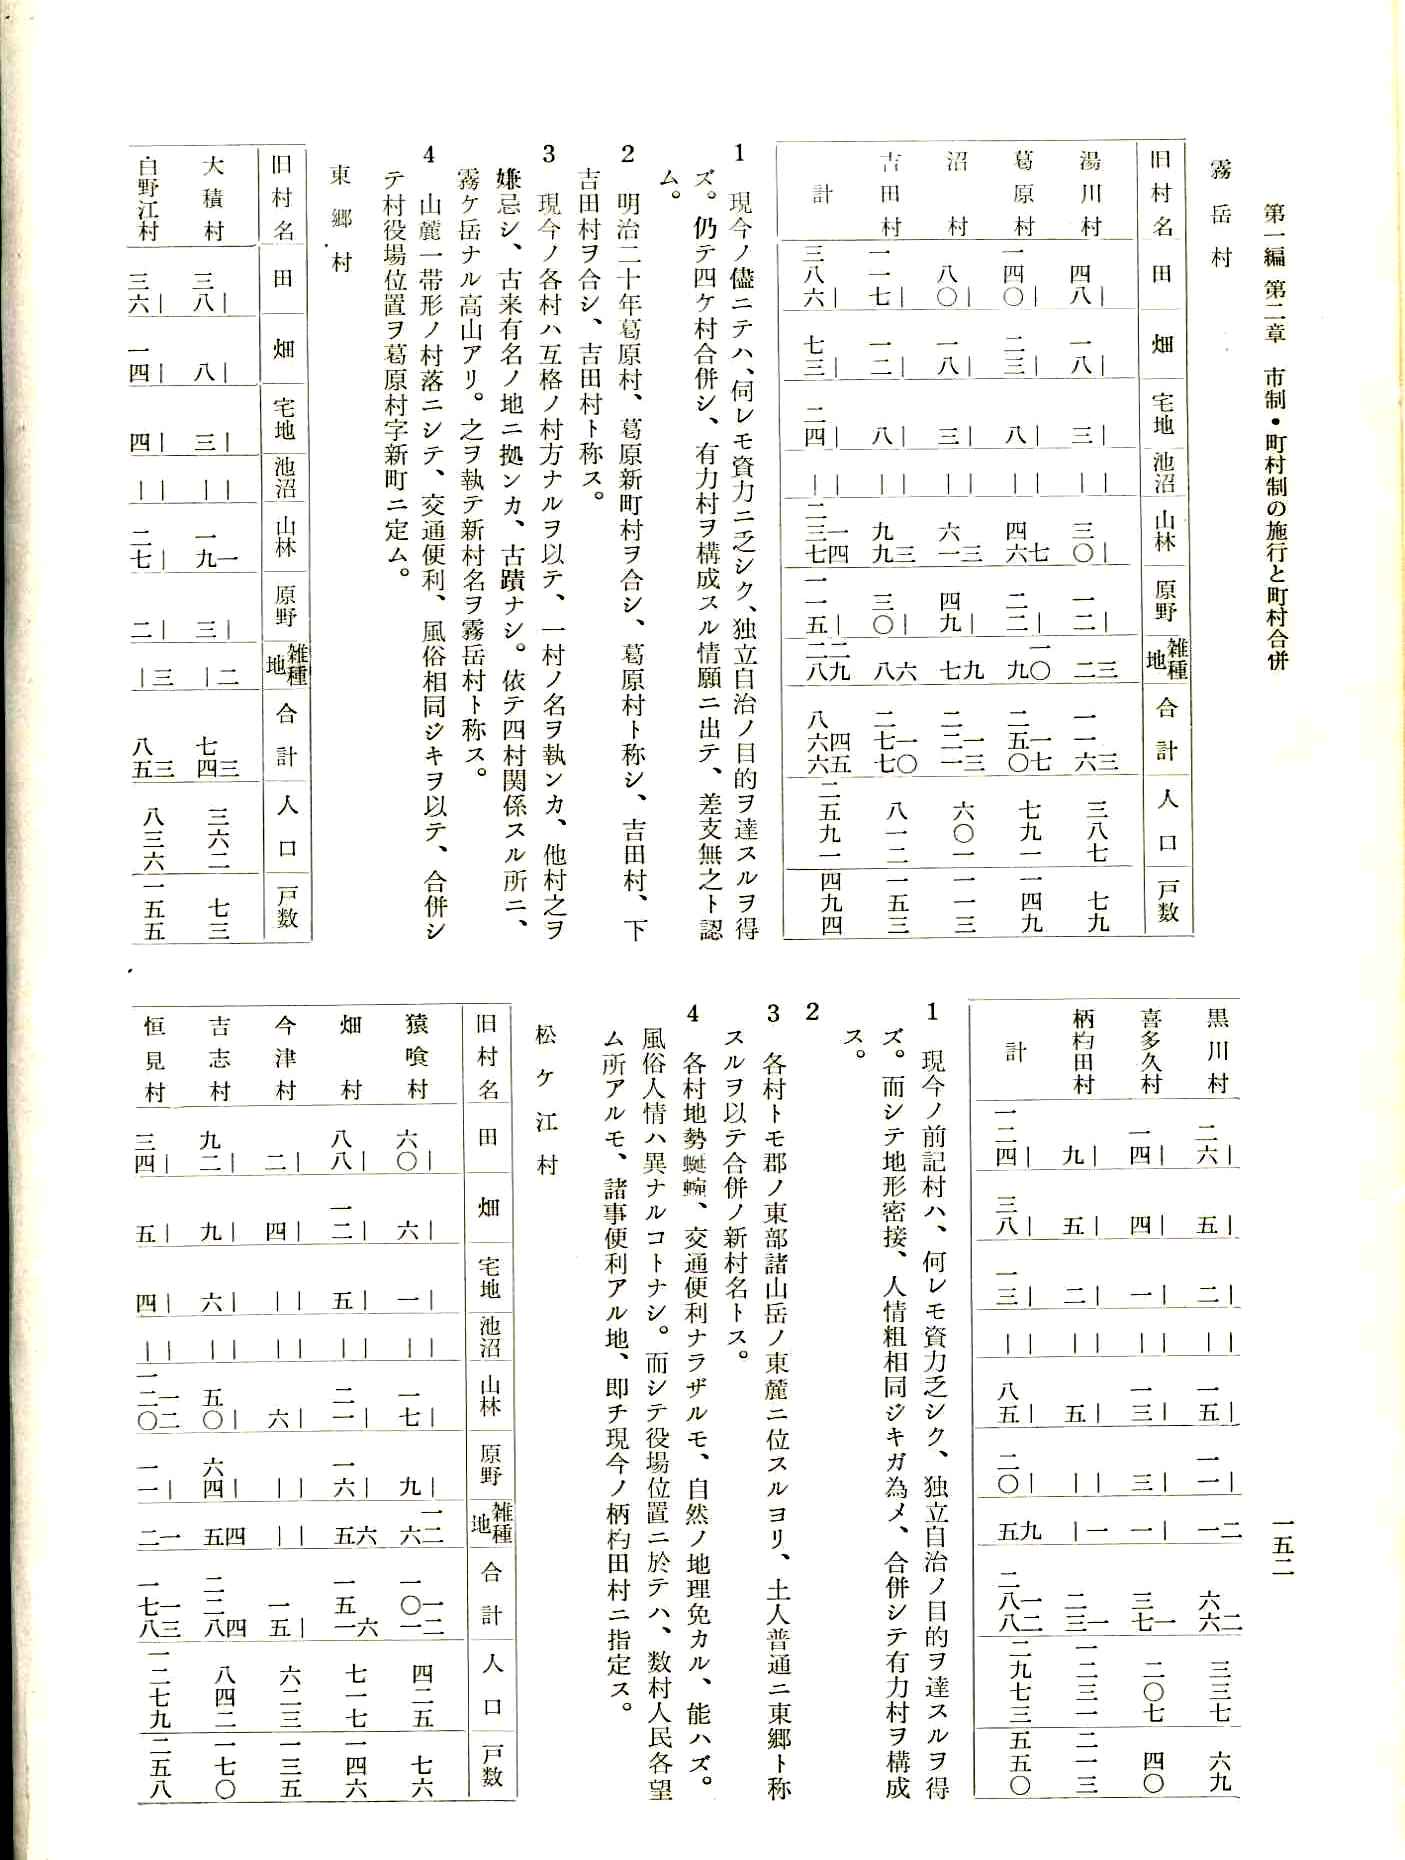 第一編 第二章 市制・町村制の施行と町村合併
一五二
霧岳村
旧村名 田 畑 宅地 池沼 山林 原野 雑種地 合計 人口 戸数
湯川村 四八｜ 一八｜ 三｜ ｜｜ 三〇｜ 一二｜ 二三 一一六 三 三八七 七九
葛原村 一四〇｜ 二三｜ 八｜ ｜｜ 四六 七 二二｜ 九 一〇 二五〇 一七 七九一 一四九
沼村 八〇｜ 一八｜ 三｜ ｜｜ 六一 三 四九｜ 七 九 二二一 一三 六〇一 一一三
吉田村 一一七｜ 一二｜ 八｜ ｜｜ 九九 三 三〇｜ 八 六 二七七 一〇 八一二 一五三
計 三八六｜ 七三｜ 二四｜ ｜｜ 二三七 一四 一一五｜ 二八 二九 八六六 四五 二五九一 四九四
1 現今ノ儘ニテハ、伺レモ資力ニ乏シク、独立自治ノ目的ヲ達スルヲ得
ズ。仍テ四ケ村合併シ、有力村ヲ構成スル情願ニ出テ、差支無之ト認
ム。
2 明治二十年葛原村、葛原新町村ヲ合シ、葛原村ト称シ、吉田村、下
吉田村ヲ合シ、吉田村ト称ス。
3 現今ノ各村ハ互格ノ村方ナルヲ以テ、一村ノ名ヲ執ンカ、他村之ヲ
嫌忌シ、古来有名ノ地ニ拠ンカ、古蹟ナシ。依テ四村関係スル所ニ、
霧ケ岳ナル高山アリ。之ヲ執テ新村名ヲ霧岳村ト称ス。
4 山麓一帯形ノ村落ニシテ、交通便利、風俗相同ジキヲ以テ、合併シ
テ村役場位置ヲ葛原村字新町ニ定ム。
東郷村
旧村名 田 畑 宅地 池沼 山林 原野 雑種地 合計 人口 戸数
大積村 三八｜ 八｜ 三｜ ｜｜ 一九 一 三｜ ｜二 七四 三 三六二 七三
白野江村 三六｜ 一四｜ 四｜ ｜｜ 二七｜ 二｜ ｜三 八五 三 八三六 一五五
黒川村 二六｜ 五｜ 二｜ ｜｜ 一五｜ 一一｜ 一 二 六六 二 三三七 六九
喜多久村 一四｜ 四｜ 一｜ ｜｜ 一三｜ 三｜ 一｜ 三七 一 二〇七 四〇
柄杓田村 九｜ 五｜ 二｜ ｜｜ 五｜ ｜｜ ｜一 二三 一 一二三一 二一三
計 一二四｜ 三八｜ 一三｜ ｜｜ 八五｜ 二〇｜ 五 九 二八八 一二 二九七三 五五〇
1 現今ノ前記村ハ、何レモ資力乏シク、独立自治ノ目的ヲ達スルヲ得
ズ。而シテ地形密接、人情粗相同ジキガ為メ、合併シテ有力村ヲ構成
ス。
2
3 各村トモ郡ノ東部諸山岳ノ東麓ニ位スルヨリ、土人普通ニ東郷ト称
スルヲ以テ合併ノ新村名トス。
4 各村地勢蜒蜿、交通便利ナラザルモ、自然ノ地理免カル、能ハズ。
風俗人情ハ異ナルコトナシ。而シテ役場位置ニ於テハ、数村人民各望
ム所アルモ、諸事便利アル地、即チ現今ノ柄杓田村ニ指定ス。
松ケ江村
旧村名 田 畑 宅地 池沼 山林 原野 雑種地 合計 人口 戸数
猿喰村 六〇｜ 六｜ 一｜ ｜｜ 一七｜ 九｜ 六 一二 一〇一 一二 四二五 七六
畑村 八八｜ 一二｜ 五｜ ｜｜ 二一｜ 一六｜ 五 六 一五一 六 七一七 一四六
今津村 二｜ 四｜ ｜｜ ｜｜ 六｜ ｜｜ ｜｜ 一五｜ 六二三 一三五
吉志村 九二｜ 九｜ 六｜ ｜｜ 五〇｜ 六四｜ 五 四 二二八 四 八四二 一七〇
恒見村 三四｜ 五｜ 四｜ ｜｜ 一二〇 一二 一一｜ 二 一 一七八 一三 一二七九 二五八